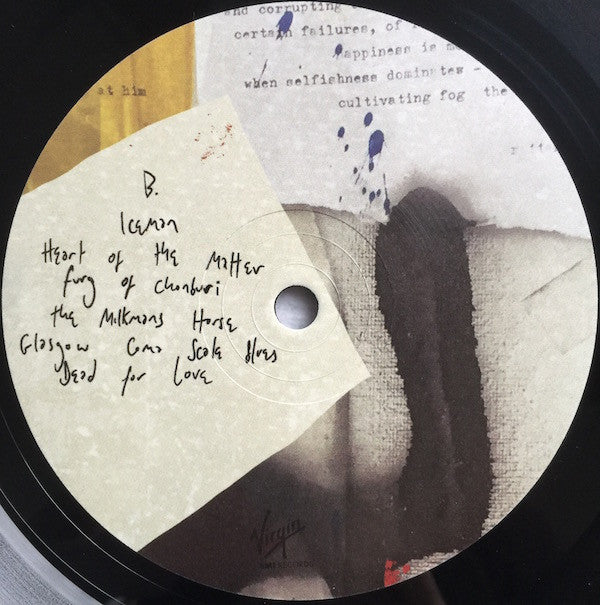 and corrupting
certain failures, of
happiness is
when selfishness dominates -
cultivating fog the
at him
B.
Iceman
Heart of the Matter
fury of chonburi
the Milkmans Horse
Glasgow Coma Scale Blues
Dead for Love
Virgin
EMI RECORDS